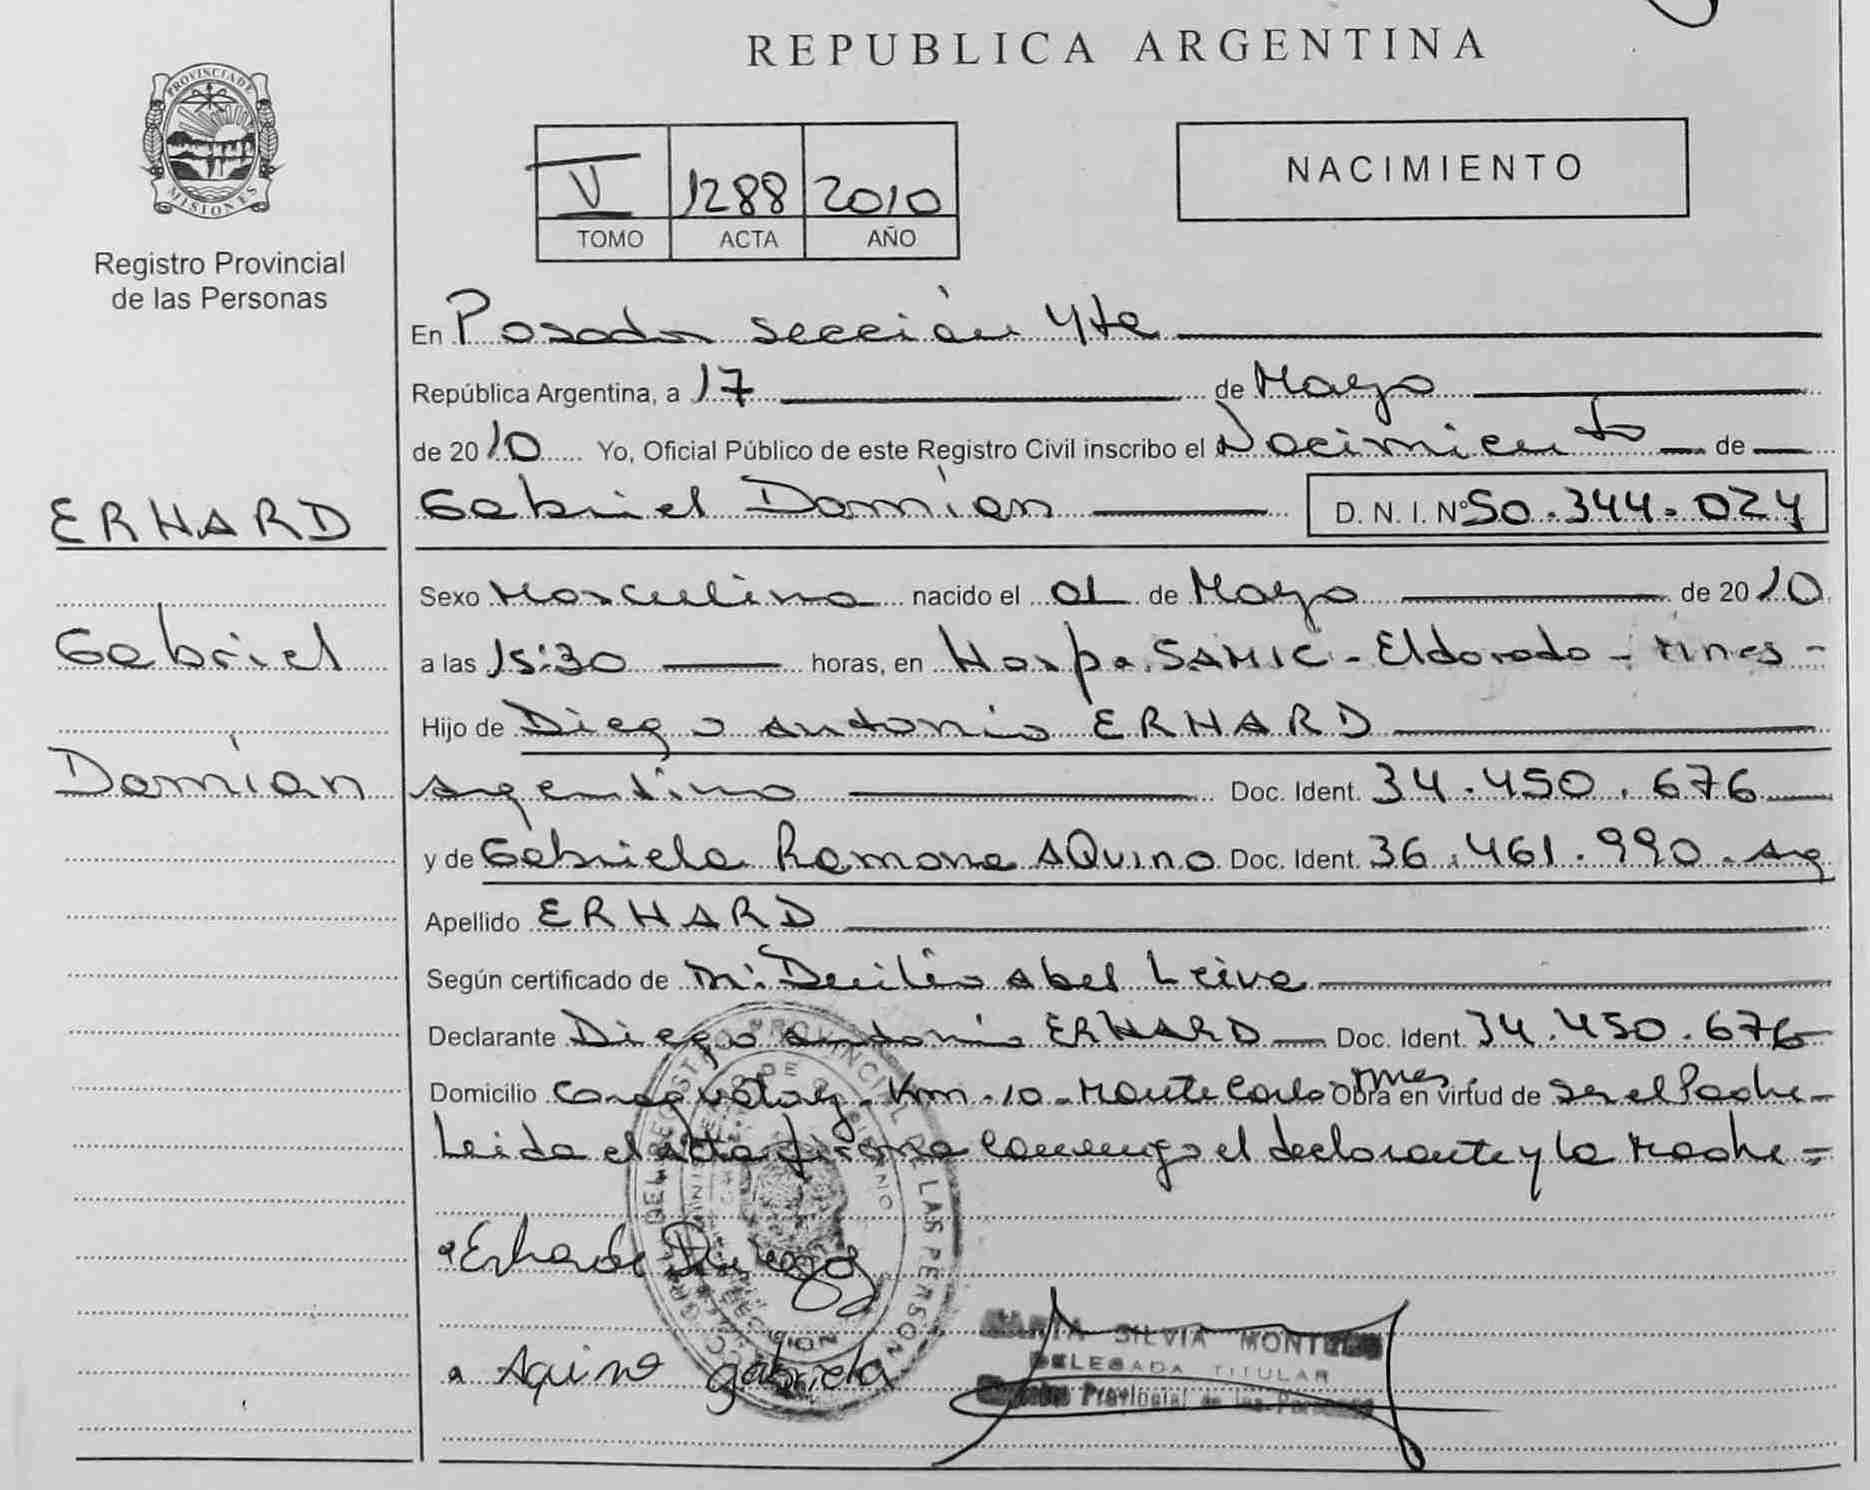 REPUBLICA ARGENTINA
PROVINCIA DE
MISIONES
Registro Provincial
de las Personas
V 1288 2010
TOMO ACTA AÑO
NACIMIENTO
En Posadas sección 4ta
República Argentina, a 17 de Mayo
de 2010 Yo, Oficial Público de este Registro Civil inscribo el Nacimiento de
Gabriel Damián D. N. I. Nº 50.344.024
ERHARD
Gabriel
Damián
Sexo Masculino nacido el 01 de Mayo de 2010
a las 15:30 horas, en Hosp. SAMIC - Eldorado - Mnes -
Hijo de Diego Antonio ERHARD
Argentino Doc. Ident. 34.450.676
y de Gabriela Ramona AQuino Doc. Ident. 36.461.990. Arg
Apellido ERHARD
Según certificado de Abel Leiva
Declarante Diego Antonio ERHARD Doc. Ident. 34.450.676
Domicilio Km. 10 - Monte Carlo Mnes Obra en virtud de ser el Padre -
Leida el acta firma conmigo el declarante y la Madre =
Erhard Diego
Aquino gabriela
MARIA SILVIA
DELEGADA TITULAR
Provincial de las Personas